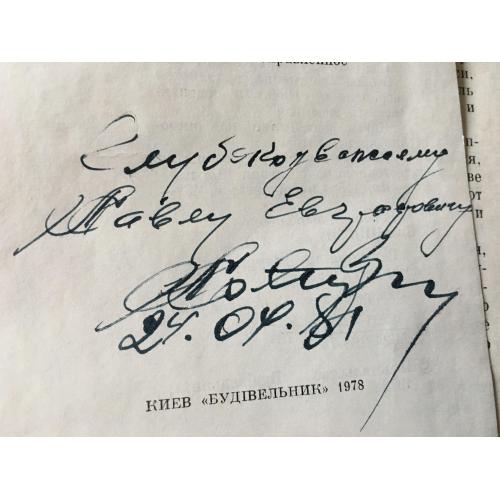 Глубокоуважаемому
Павлу Евграфовичу
24.04.81
КИЕВ «БУДІВЕЛЬНИК» 1978